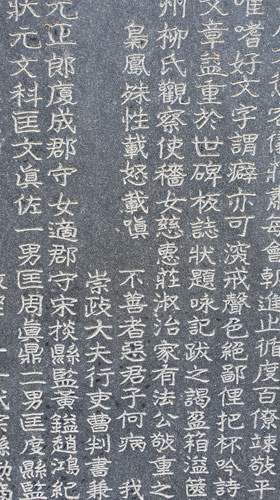 儀莊肅每會朝進止循度百僚竦敬平
唯嗜好文字謂癖亦可演戒聲色絕鄙俚把杯吟詩
文章益重於世碑板誌狀題咏記跋之謁盈箱溢篋
州柳氏觀察使穡女慈惠莊淑治家有法公敬重之
梟鳳殊性載怒載嗔 不善者惡君子何病我
崇政大夫行吏曹判書兼
元正郎度成郡守女適郡守宋掞縣監黃鎰趙鴻紀
狀元文科匡文眞佐一男匡周眞鼎二男匡度縣監